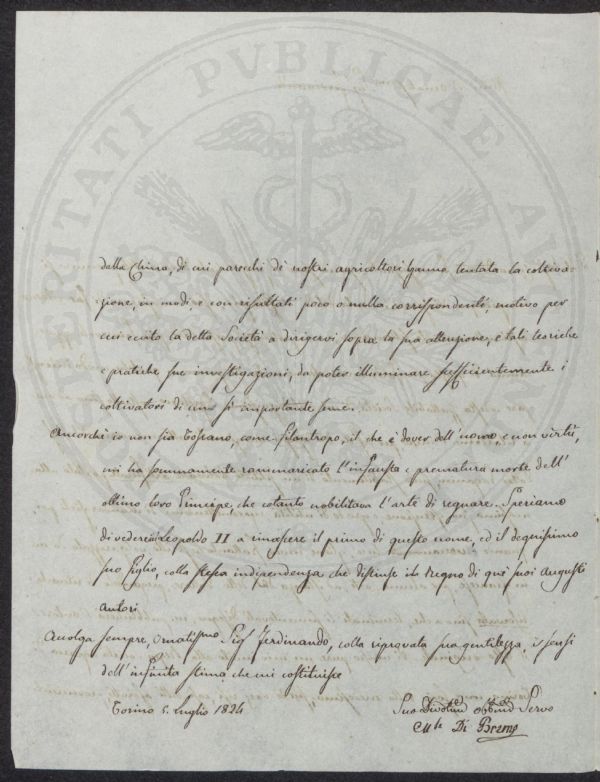 della China, di cui parecchi de' nostri agricoltori hanno tentata la coltiva-
zione, in modi e con risultati poco o nulla corrispondenti, motivo per
cui eccito la detta Società a dirigervi sopra la sua attenzione, e tali teoriche
e pratiche sue investigazioni, da poter illuminare sufficientemente i
coltivatori di uno sì importante seme.
Ancorchè io non sia Toscano, come filantropo, il che è dover dell'uomo, e non virtù,
mi ha sommamente rammaricato l'infausta e prematura morte dell'
ottimo loro Principe, che cotanto nobilitava l'arte di regnare. Speriamo
di vedere in Leopoldo II a rinascere il primo di questo nome, ed il degnissimo
suo figlio, colla stessa indipendenza che distinse il Regno di que' suoi Augusti
autori.
Accolga sempre, Ornatissmo Sigr Ferdinando, colla riprovata sua gentilezza, i sensi
dell'infinita stima che mi costituisce
Torino 5. Luglio 1824
Suo Servo
Di Breme
PVBLICAE